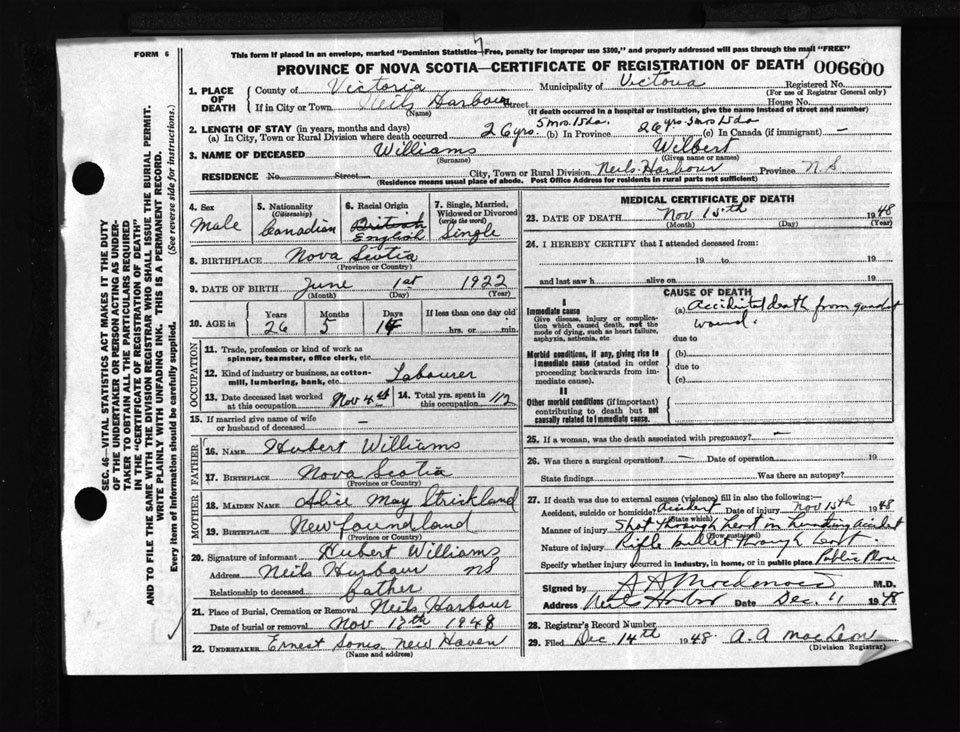 FORM 6
This form if placed in an envelope, marked "Dominion Statistics—Free, penalty for improper use $300," and properly addressed will pass through the mail "FREE"
PROVINCE OF NOVA SCOTIA—CERTIFICATE OF REGISTRATION OF DEATH 006600
1. PLACE OF DEATH
County of Victoria Municipality of Victoria Registered No.
(For use of Registrar General only)
If in City or Town Neils Harbour Street House No.
(Name) (If death occurred in a hospital or institution, give the name instead of street and number)
2. LENGTH OF STAY (in years, months and days)
(a) In City, Town or Rural Division where death occurred 26 yrs. 5 mos. 15 da (b) In Province 26 yrs. 5 mos 15 da (c) In Canada (if immigrant) —
3. NAME OF DECEASED Williams Wilbert
(Surname) (Given name or names)
RESIDENCE No. Street City, Town or Rural Division Neils Harbour Province N.S.
(Residence means usual place of abode. Post Office Address for residents in rural parts not sufficient)
4. Sex Male
5. Nationality (Citizenship) Canadian
6. Racial Origin British English
7. Single, Married, Widowed or Divorced (write the word) Single
8. BIRTHPLACE Nova Scotia
(Province or Country)
9. DATE OF BIRTH June 1st 1922
(Month) (Day) (Year)
10. AGE in Years 26 Months 5 Days 14 If less than one day old hrs. or min.
OCCUPATION
11. Trade, profession or kind of work as spinner, teamster, office clerk, etc.
12. Kind of industry or business, as cotton-mill, lumbering, bank, etc. Labourer
13. Date deceased last worked at this occupation Nov 4th
14. Total yrs. spent in this occupation
15. If married give name of wife or husband of deceased —
FATHER
16. NAME Hubert Williams
17. BIRTHPLACE Nova Scotia
(Province or Country)
MOTHER
18. MAIDEN NAME Alice May Strickland
19. BIRTHPLACE Newfoundland
(Province or Country)
20. Signature of informant Hubert Williams
Address Neils Harbour NS
Relationship to deceased father
21. Place of Burial, Cremation or Removal Neils Harbour
Date of burial or removal Nov 17th 1948
22. UNDERTAKER Ernest New Haven
(Name and address)
MEDICAL CERTIFICATE OF DEATH
23. DATE OF DEATH Nov 15th 1948
(Month) (Day) (Year)
24. I HEREBY CERTIFY that I attended deceased from:
19 to 19
and last saw h alive on 19
CAUSE OF DEATH
I
Immediate cause
Give disease, injury, or complication which caused death, not the mode of dying, such as heart failure, asphyxia, asthenia, etc
(a) Accidental death from gunshot wound.
due to
Morbid conditions, if any, giving rise to immediate cause (stated in order proceeding backwards from immediate cause).
(b)
due to
(c)
II
Other morbid conditions (if important) contributing to death but not causally related to immediate cause.
25. If a woman, was the death associated with pregnancy? —
26. Was there a surgical operation? — Date of operation 19
State findings Was there an autopsy?
27. If death was due to external causes (violence) fill in also the following:—
Accident, suicide or homicide? Accident Date of injury Nov 15th 1948
(State which)
Manner of injury Shot through heart in hunting accident
(How sustained)
Nature of injury Rifle bullet through heart.
Specify whether injury occurred in industry, in home, or in public place Public Place
Signed by M.D.
Address Neil Harbor Date Dec. 11 1948
28. Registrar's Record Number
29. Filed Dec 14th 1948 A. A MacLeod
(Division Registrar)
SEC. 46—VITAL STATISTICS ACT MAKES IT THE DUTY
OF THE UNDERTAKER OR PERSON ACTING AS UNDER-
TAKER TO OBTAIN ALL THE PARTICULARS REQUIRED
IN THE "CERTIFICATE OF REGISTRATION OF DEATH"
AND TO FILE THE SAME WITH THE DIVISION REGISTRAR WHO SHALL ISSUE THE BURIAL PERMIT.
WRITE PLAINLY WITH UNFADING INK. THIS IS A PERMANENT RECORD.
Every item of Information should be carefully supplied. (See reverse side for instructions.)